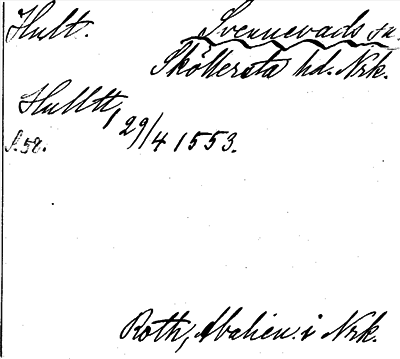 Hult. Svennevads sn.
Sköllersta hd. Nrk.
Hulltt, 29/4 1553.
S. 58.
Roth, Abalien. i Nrk.